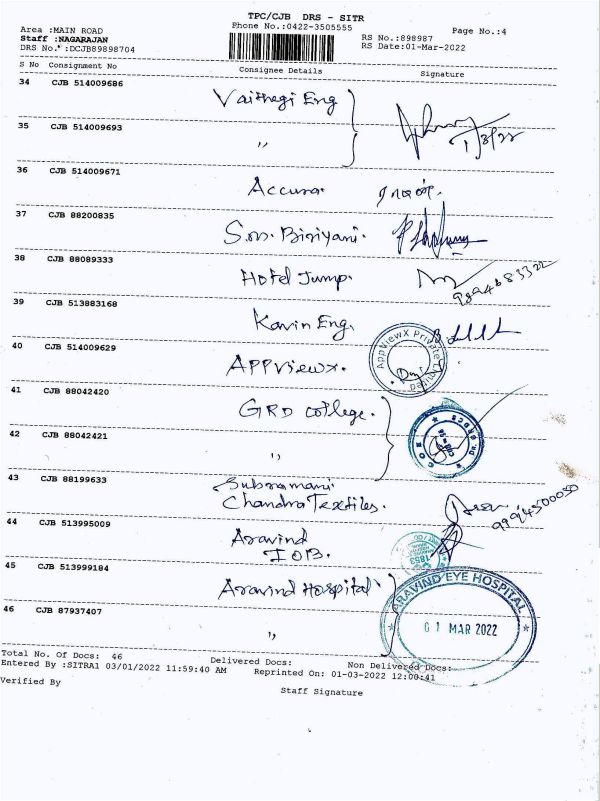 TPC/CJB DRS - SITR
Phone No.:0422-3505555
Page No.:4
Area :MAIN ROAD
Staff :NAGARAJAN
DRS No. :DCJB89898704
RS No.:898987
RS Date:01-Mar-2022
S No Consignment No Consignee Details Signature
34 CJB 514009686 Vaithegi Eng
35 CJB 514009693 ,,
1/3/22
36 CJB 514009671 Accura.
37 CJB 88200835 S.M. Biriyani.
38 CJB 88089333 Hotel Jump.
9894683322
39 CJB 513883168 Kavin Eng.
40 CJB 514009629 APPViewx.
AppViewX Private Limited
41 CJB 88042420 GRD College.
42 CJB 88042421 ,,
Dr. GRDCS
43 CJB 88199633 Subramani
Chandra Textiles.
9994500050
44 CJB 513995009 Aravind
IOB.
45 CJB 513999184 Aravind Hospital
ARAVIND EYE HOSPITAL
01 MAR 2022
46 CJB 87937407 ,,
Total No. Of Docs: 46 Delivered Docs: Non Delivered Docs:
Entered By :SITRA1 03/01/2022 11:59:40 AM Reprinted On: 01-03-2022 12:00:41
Verified By Staff Signature